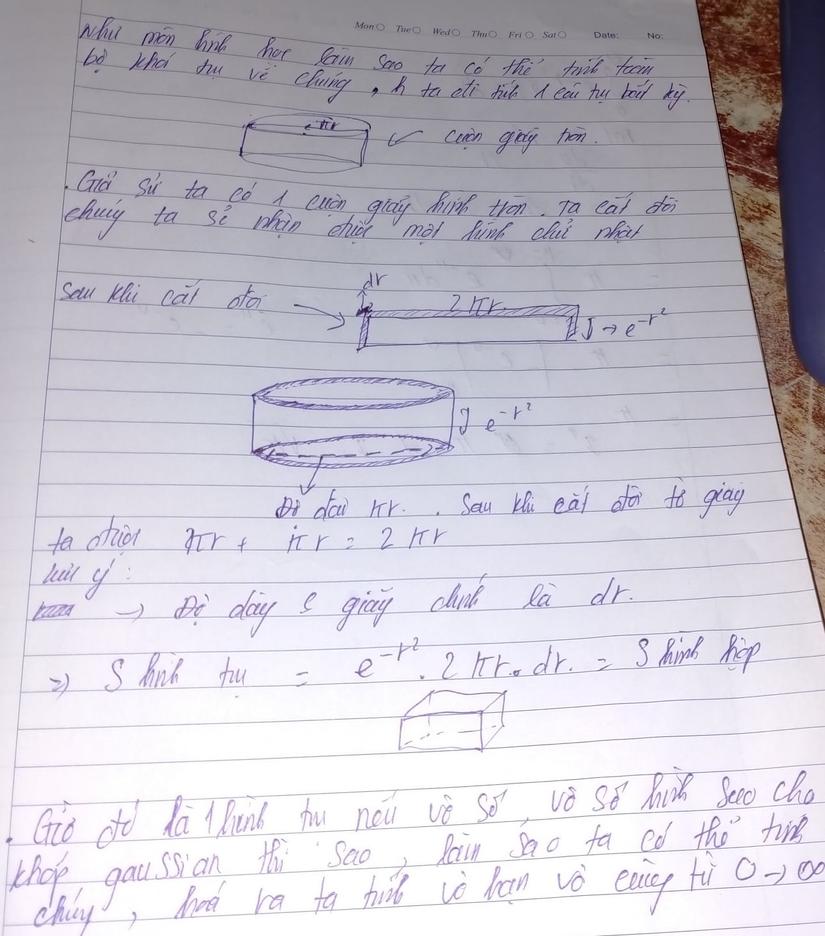 Mon Tue Wed Thu Fri Sat Date: No:
Như môn hình học làm sao ta có thể tính toán
bộ khá trụ về chúng, ta đi tính 1 cái trụ bất kỳ.
πr cuộn giấy tròn.
. Giả sử ta có 1 cuộn giấy hình tròn. Ta cắt đôi
chúng ta sẽ nhận được một hình chữ nhật
Sau khi cắt đôi dr 2πr → e^-r²
e^-r²
Độ dài πr. . Sau khi cắt đôi tờ giấy
ta được πr + πr = 2πr
lưu ý:
→ Độ dày giấy chính là dr.
=> S hình trụ = e^-r² . 2πr . dr. = S hình hộp
. Giờ đó là 1 hình trụ nếu vô số, vô số hình sao cho
khớp gaussian thì sao, làm sao ta có thể tính
chúng, hoá ra ta tính vô hạn vô cùng từ 0 → ∞